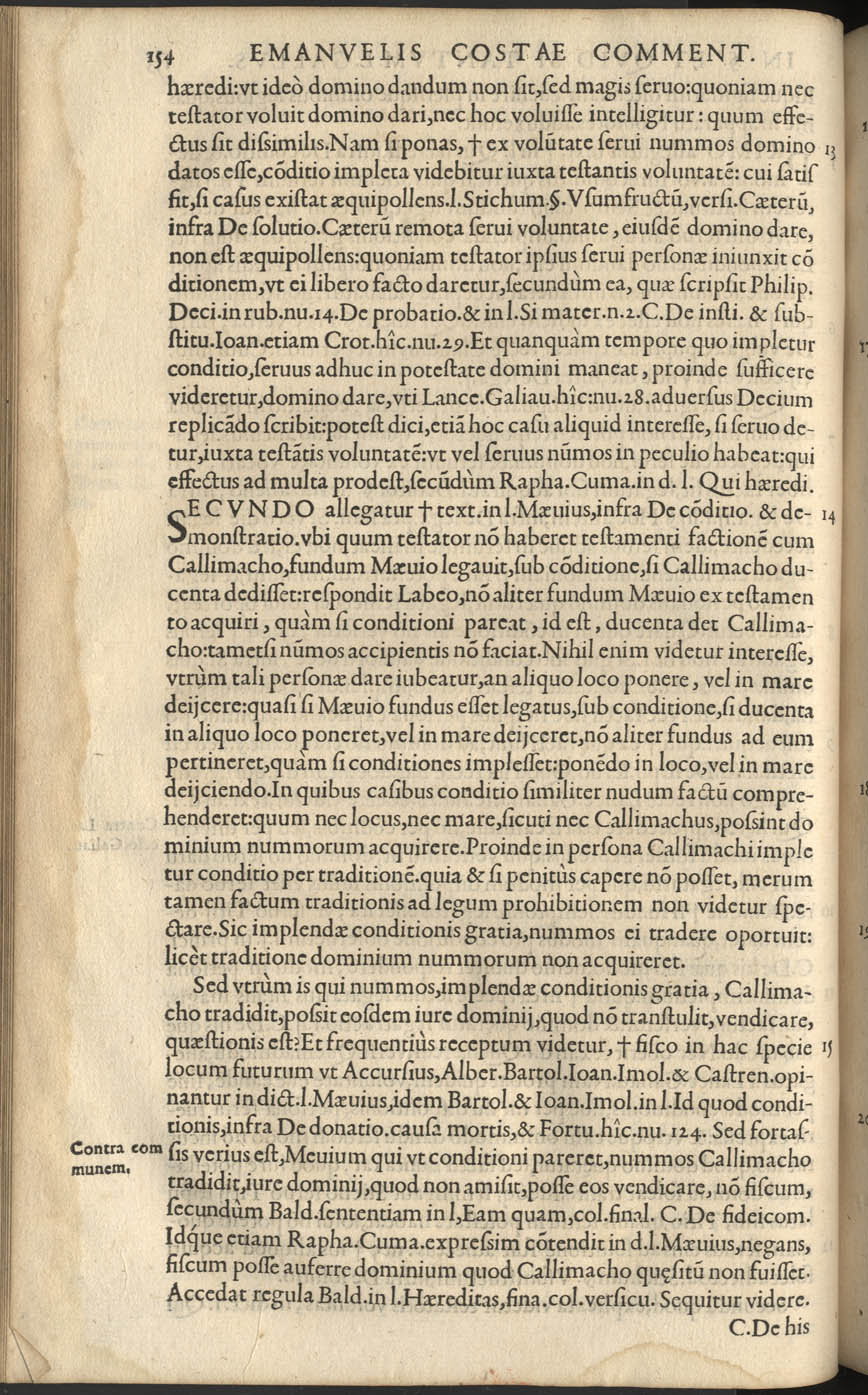 154 EMANVELIS COSTAE COMMENT.
hæredi:vt ideò domino dandum non ſit,ſed magis ſeruo:quoniam nec
teſtator voluit domino dari,nec hoc voluiſſe intelligitur: quum effe-
ctus ſit diſsimilis.Nam ſi ponas, † ex volūtate ſerui nummos domino 13
datos eſſe,cōditio impleta videbitur iuxta teſtantis voluntatē: cui ſatiſ
fit,ſi caſus exiſtat æquipollens.l.Stichum.§.Vſumfructū,verſi.Cæterū,
infra De ſolutio.Cæterū remota ſerui voluntate, eiuſdē domino dare,
non eſt æquipollens:quoniam teſtator ipſius ſerui perſonæ iniunxit cō
ditionem,vt ei libero facto daretur,ſecundùm ea, quæ ſcripſit Philip.
Deci.in rub.nu.14.De probatio.& in l.Si mater.n.2.C.De inſti. & ſub-
ſtitu.Ioan.etiam Crot.hîc.nu.29.Et quanquàm tempore quo impletur
conditio,ſeruus adhuc in poteſtate domini maneat, proinde ſufficere
videretur,domino dare,vti Lance.Galiau.hîc:nu.28.aduerſus Decium
replicādo ſcribit:poteſt dici,etiā hoc caſu aliquid intereſſe, ſi ſeruo de-
tur,iuxta teſtātis voluntatē:vt vel ſeruus nūmos in peculio habeat:qui
effectus ad multa prodeſt,ſecūdùm Rapha.Cuma.in d. l. Qui hæredi.
SECVNDO allegatur † text.in l.Mæuius,infra De cōditio. & de- 14
monſtratio.vbi quum teſtator nō haberet teſtamenti factionē cum
Callimacho,fundum Mæuio legauit,ſub cōditione,ſi Callimacho du-
centa dediſſet:reſpondit Labeo,nō aliter fundum Mæuio ex teſtamen
to acquiri, quàm ſi conditioni pareat, id eſt, ducenta det Callima-
cho:tametſi nūmos accipientis nō faciat.Nihil enim videtur intereſſe,
vtrùm tali perſonæ dare iubeatur,an aliquo loco ponere, vel in mare
deijcere:quaſi ſi Mæuio fundus eſſet legatus,ſub conditione,ſi ducenta
in aliquo loco poneret,vel in mare deijceret,nō aliter fundus ad eum
pertineret,quàm ſi conditiones impleſſet:ponēdo in loco,vel in mare
deijciendo.In quibus caſibus conditio ſimiliter nudum factū compre-
henderet:quum nec locus,nec mare,ſicuti nec Callimachus,poſsint do
minium nummorum acquirere.Proinde in perſona Callimachi imple
tur conditio per traditionē.quia & ſi penitùs capere nō poſſet, merum
tamen factum traditionis ad legum prohibitionem non videtur ſpe-
ctare.Sic implendæ conditionis gratia,nummos ei tradere oportuit:
licèt traditione dominium nummorum non acquireret.
Sed vtrùm is qui nummos,implendæ conditionis gratia, Callima-
cho tradidit,poſsit eoſdem iure dominij,quod nō tranſtulit,vendicare,
quæſtionis eſt?Et frequentiùs receptum videtur, † fiſco in hac ſpecie 15
locum futurum vt Accurſius,Alber.Bartol.Ioan.Imol.& Caſtren.opi-
nantur in dict.l.Mæuius,idem Bartol.& Ioan.Imol.in l.Id quod condi-
tionis,infra De donatio.cauſa mortis,& Fortu.hîc.nu. 124. Sed fortaſ-
Contra com
munem.
ſis verius eſt,Meuium qui vt conditioni pareret,nummos Callimacho
tradidit,iure dominij,quod non amiſit,poſſe eos vendicare, nō fiſcum,
ſecundùm Bald.ſententiam in l,Eam quam,col.final. C. De fideicom.
Idq́ue etiam Rapha.Cuma.expreſsim cōtendit in d.l.Mæuius,negans,
fiſcum poſſe auferre dominium quod Callimacho quęſitū non fuiſſet.
Accedat regula Bald.in l.Hæreditas,fina.col.verſicu. Sequitur videre.
C.De his